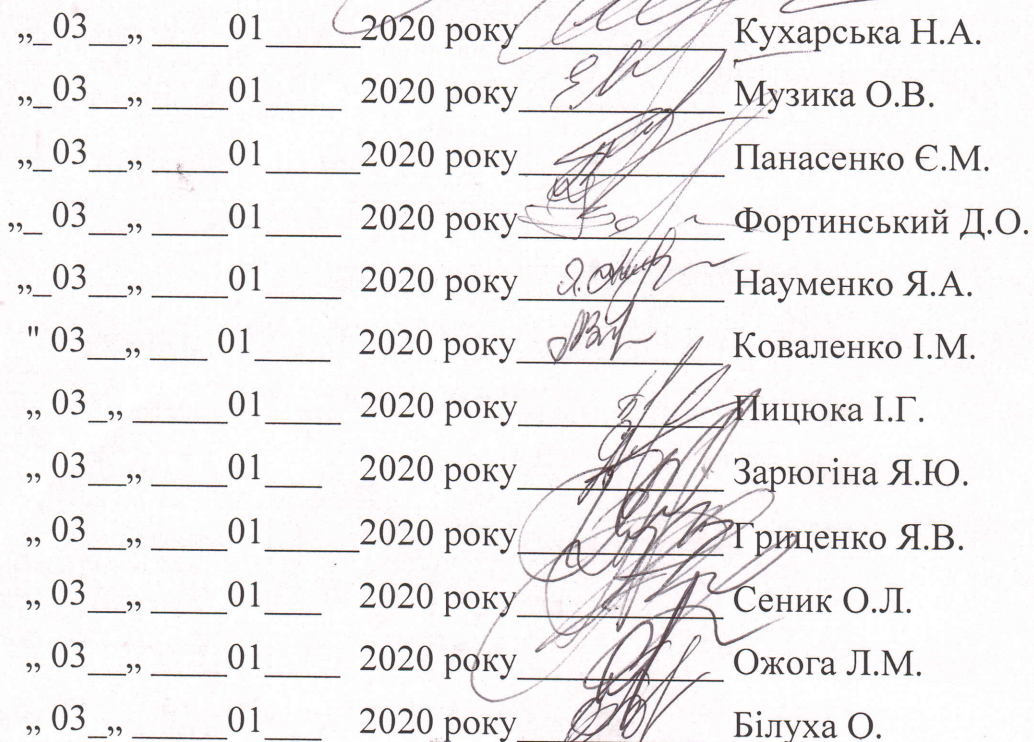 „_03__„ _____01_____2020 року___________ Кухарська Н.А.
„_03__„ _____01____ 2020 року___________ Музика О.В.
„_03__„ _____01_____2020 року___________ Панасенко Є.М.
„_ 03__„ _____01____ 2020 року___________ Фортинський Д.О.
„_03__„ _____01____ 2020 року___________ Науменко Я.А.
" 03__„ ___ 01____ 2020 року___________ Коваленко І.М.
„ 03_„ _____01____ 2020 року___________ Пицюка І.Г.
„ 03__„ ____01___ 2020 року___________ Зарюгіна Я.Ю.
„ 03__„ ____01_____2020 року___________ Гриценко Я.В.
„ 03__„ ____01___ 2020 року___________ Сеник О.Л.
„ 03__„ ____01___ 2020 року___________ Ожога Л.М.
„ 03_„ _____01____ 2020 року___________ Білуха О.